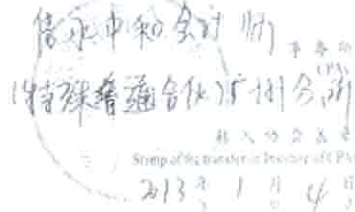 信永中和会计师
事务所
(CPAs)
(特殊普通合伙)广州分所
转入协会盖章
Stamp of the transfer-in Institute of CPAs
2013年 1月 4日